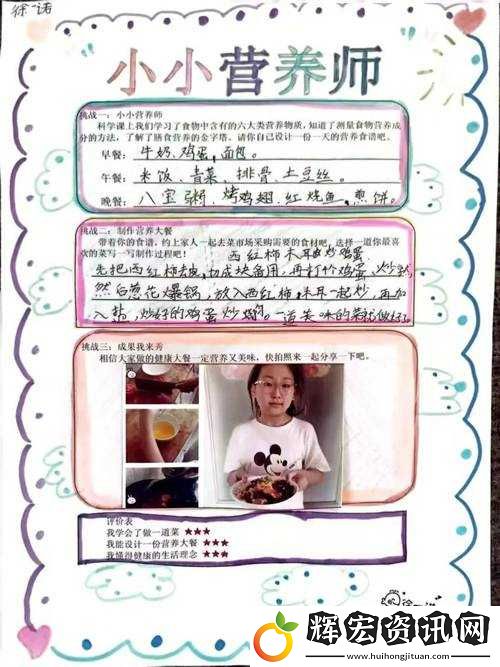 徐一诺
小小营养师
挑战一：小小营养师
科学课上我们学习了食物中含有的六大类营养物质，知道了测量食物营养成
分的方法，了解了膳食营养的金字塔。请你自己设计一份一天的营养食谱吧。
早餐：牛奶、鸡蛋，面包。
午餐：米饭、青菜、排骨、土豆丝。
晚餐：八宝粥，烤鸡翅，红烧鱼，煎饼。
挑战二：制作营养大餐
带着你的食谱，约上家人一起去菜市场采购需要的食材吧，选择一道你最喜
欢的菜写一写制作过程吧！西红柿木耳炒鸡蛋
先把西红柿去皮，切成块备用，再打个鸡蛋，炒熟
然后葱花爆锅，放入西红柿，木耳一起炒，再加
入盐，炒好的鸡蛋炒，一道美味的菜就做好了
挑战三：成果我来秀
相信大家做的健康大餐一定营养又美味，快拍照来一起分享一下吧。
评价表
我学会了做一道菜 ★★★
我能设计一份营养大餐 ★★★
我懂得健康的生活理念 ★★★
辉宏资讯网
www.huihongjituan.com